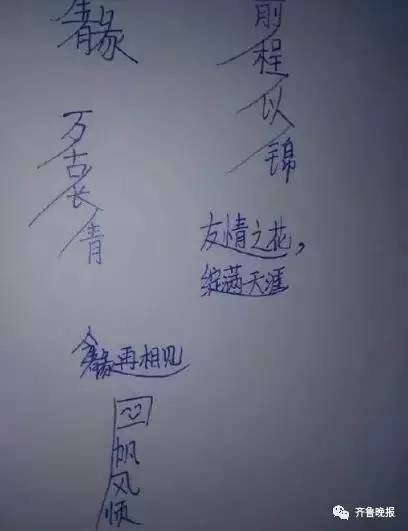 前程似锦
万古长青
友情之花，
绽满天涯
再相见
帆风顺
齐鲁晚报